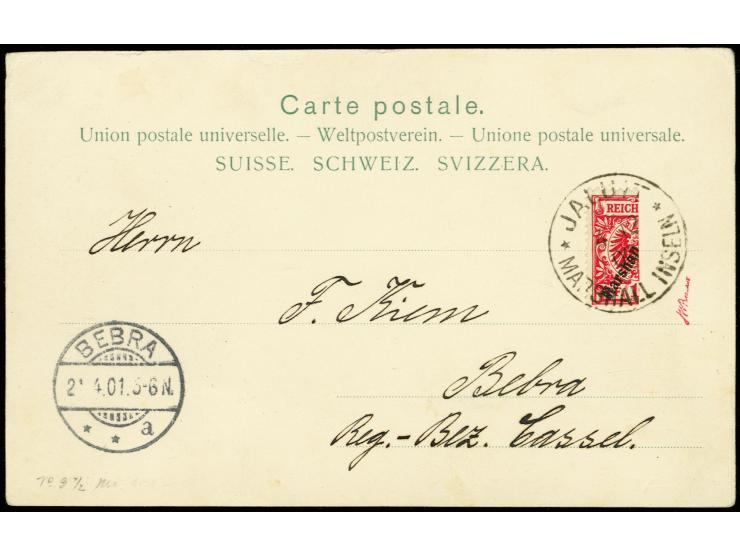 Carte postale.
Union postale universelle. — Weltpostverein. — Unione postale universale.
SUISSE. SCHWEIZ. SVIZZERA.
JALUIT
REICH
Marshall
MARSHALL INSELN
Herrn
F. Kiem
BEBRA
4.01.5-6 N.
a
Bebra
Reg.-Bez. Cassel.